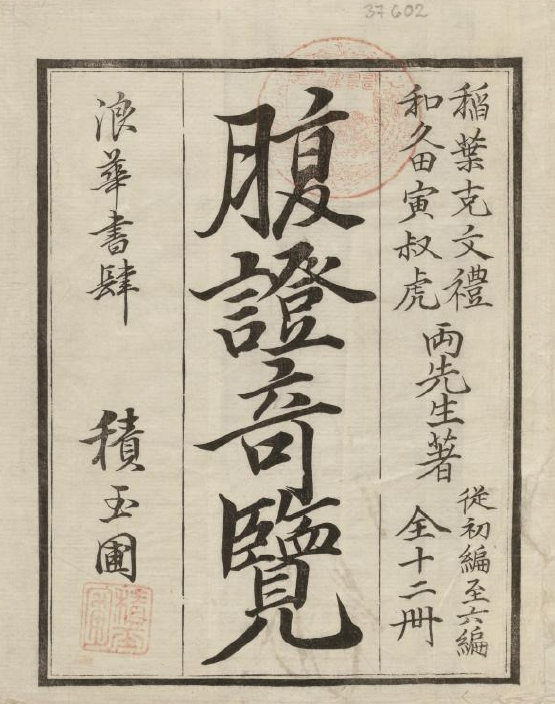 37602
稲葉克文禮
和久田寅叔虎
両先生著
從初編至六編
全十二冊
腹證奇覽
浪華書肆
積玉圃